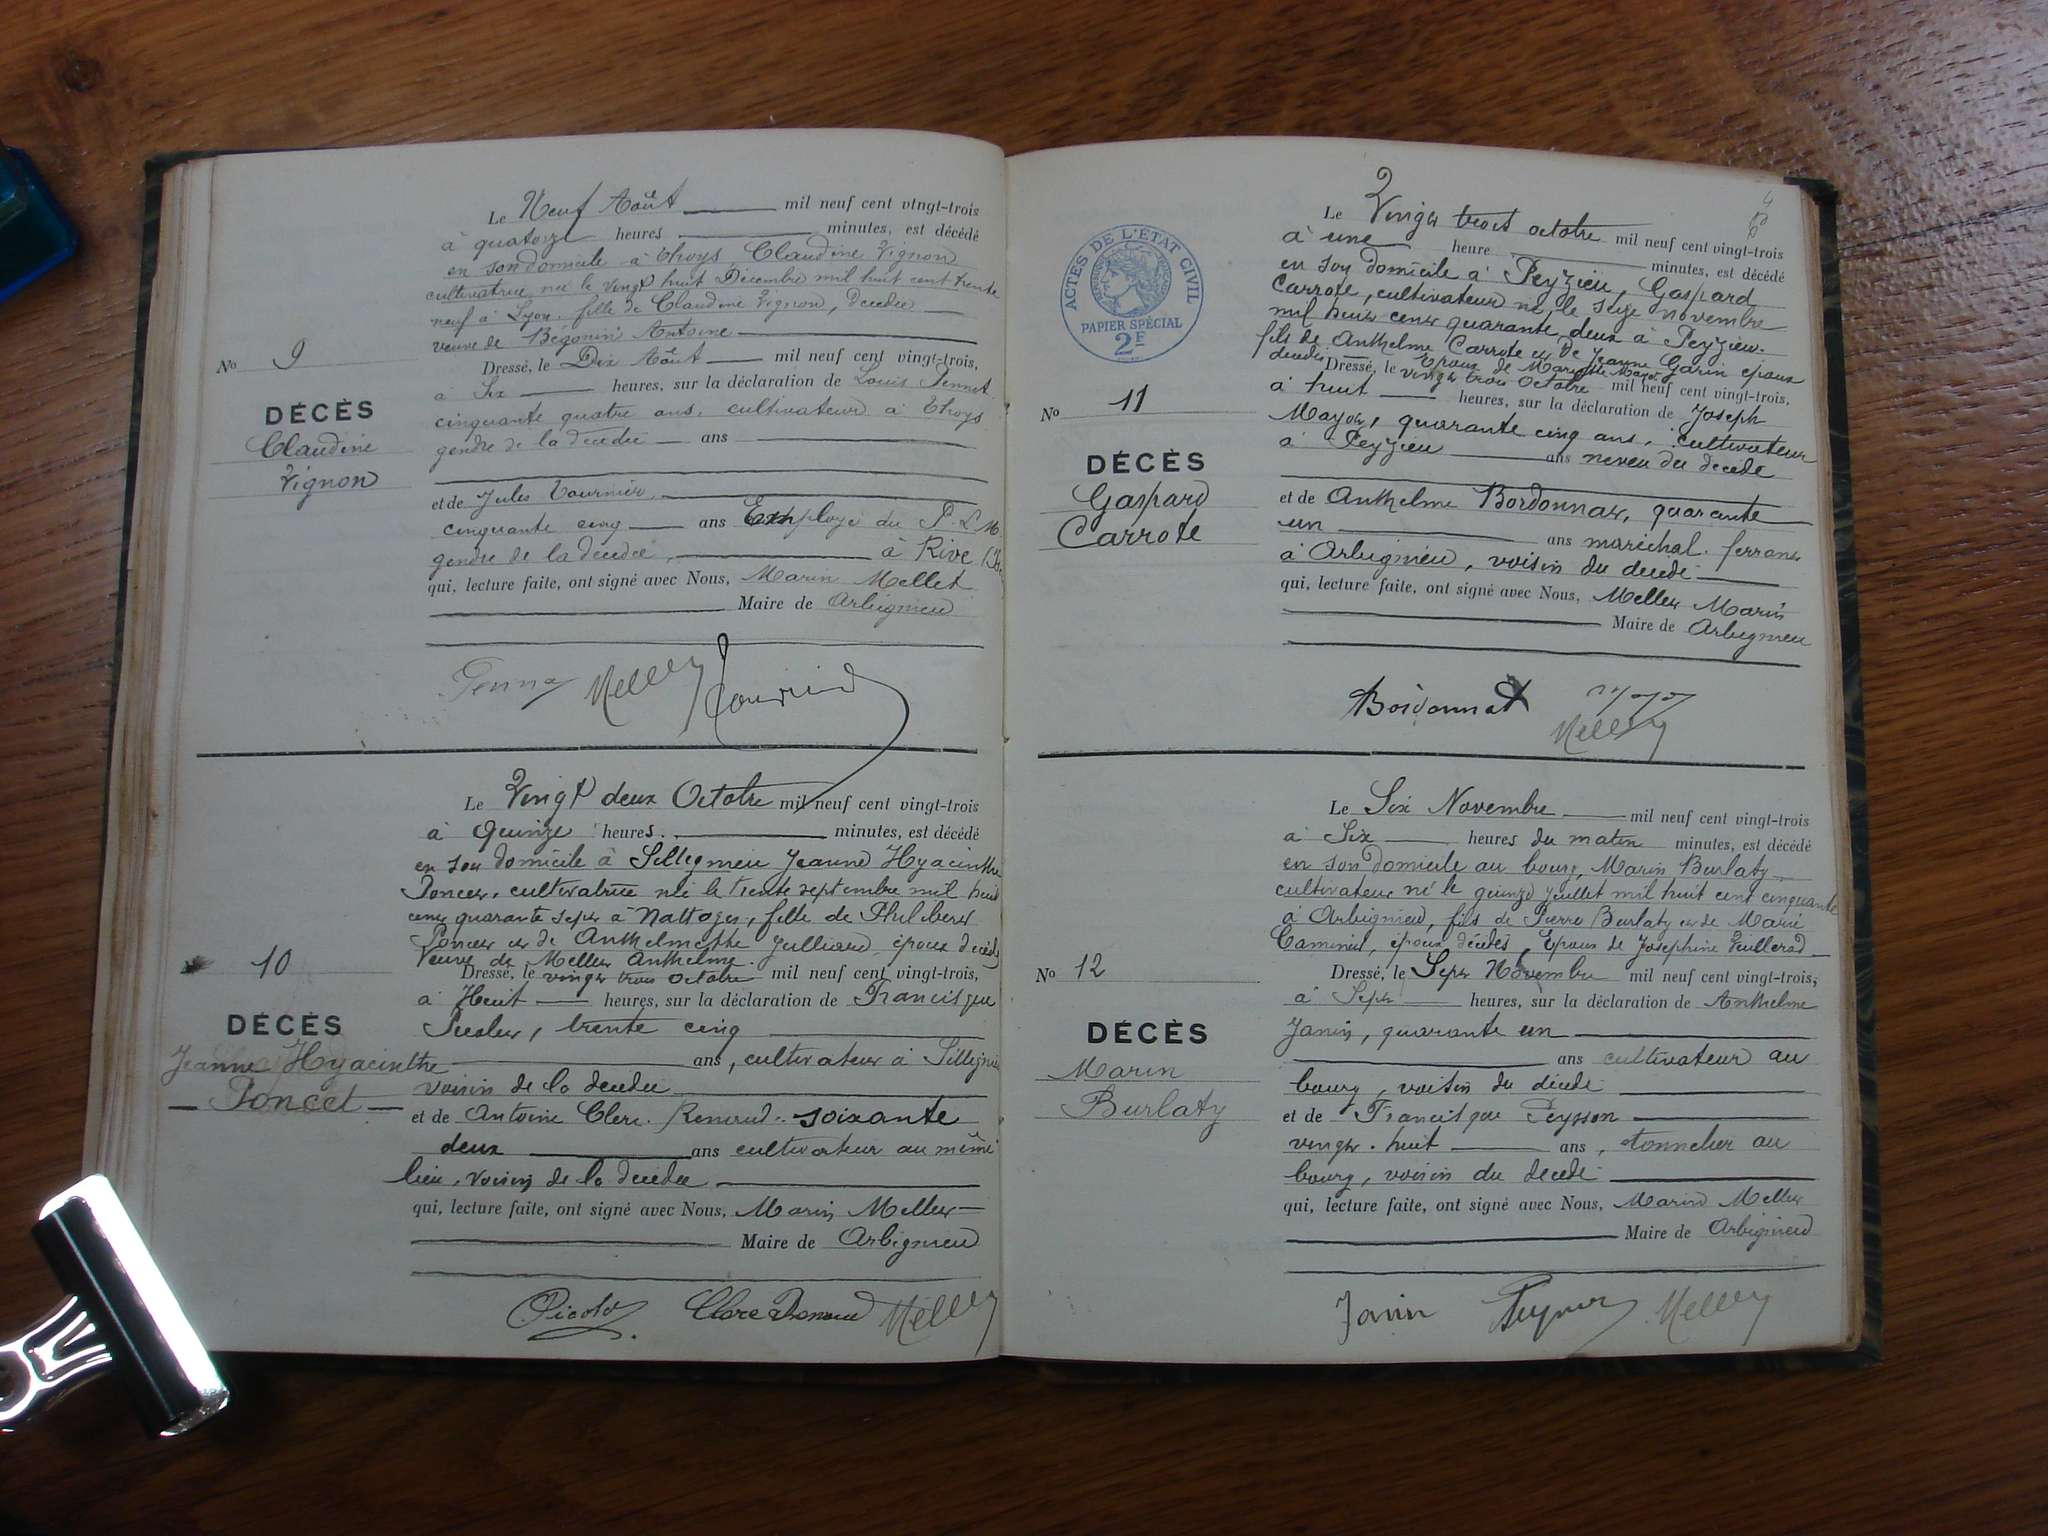 Le Neuf Août mil neuf cent vingt-trois
à quatorze heures minutes, est décédé
en son domicile à Thoys, Claudine Vignon
cultivatrice née le vingt huit Décembre mil huit cent trente
neuf à Lyon, fille de Claudine Vignon, décédée
veuve de Bégonin Antoine
No 9
DÉCÈS
Claudine
Vignon
Dressé, le Dix Août mil neuf cent vingt-trois,
à Six heures, sur la déclaration de Louis Pennet
cinquante quatre ans, cultivateur à Thoys
gendre de la décédée ans
et de Jules Tournier,
cinquante cinq ans Employé du P. L. M.
gendre de la décédée, à Rive
qui, lecture faite, ont signé avec Nous, Marin Mellet
Maire de Arbignieu
Mellet
Le Vingt deux Octobre mil neuf cent vingt-trois
à Quinze heures. minutes, est décédé
en son domicile à Sillignieu Jeanne Hyacinthe
Poncet, cultivatrice née le trente septembre mil huit
cent quarante sept à Nattages, fille de Philibert
Poncet et de Anthelmette Julliand, époux décédés
Veuve de Mellet Anthelme.
10
DÉCÈS
Jeanne Hyacinthe
Poncet
Dressé, le vingt trois octobre mil neuf cent vingt-trois,
à Huit heures, sur la déclaration de Francisque
trente cinq
ans, cultivateur à Sillignieu
voisin de la décédée
et de Antoine Clerc-Renaud, soixante
deux ans cultivateur au même
lieu, voisin de la décédée
qui, lecture faite, ont signé avec Nous, Marin Mellet
Maire de Arbignieu
Clerc Renaud Mellet
ACTES DE L'ETAT CIVIL
PAPIER SPÉCIAL
2F
Le Vingt trois octobre mil neuf cent vingt-trois
à une heure minutes, est décédé
en son domicile à Peyzieu, Gaspard
Carrote, cultivateur né le seize novembre
mil huit cent quarante deux à Peyzieu.
fils de Anthelme Carrote et de Jeanne Garin époux
décédés. Epoux de Mariette Mayot
No 11
DÉCÈS
Gaspard
Carrote
Dressé, le vingt trois Octobre mil neuf cent vingt-trois,
à huit heures, sur la déclaration de Joseph
Mayot, quarante cinq ans, cultivateur
à Peyzieu ans neveu du décédé
et de Anthelme Bordonnat, quarante
un ans maréchal ferrant
à Arbignieu, voisin du décédé
qui, lecture faite, ont signé avec Nous, Mellet Marin
Maire de Arbignieu
Bordonnat Mayot
Mellet
Le Six Novembre mil neuf cent vingt-trois
à Six heures du matin minutes, est décédé
en son domicile au bourg, Marin Burlaty
cultivateur né le quinze juillet mil huit cent cinquante
à Arbignieu, fils de Pierre Burlaty et de Marie
époux décédés, Epoux de Josephine Vuillerod
No 12
DÉCÈS
Marin
Burlaty
Dressé, le Sept Novembre mil neuf cent vingt-trois,
à Sept heures, sur la déclaration de Anthelme
Janin, quarante un
ans cultivateur au
bourg, voisin du décédé
et de Francisque Peysson
vingt-huit ans, tonnelier au
bourg, voisin du décédé
qui, lecture faite, ont signé avec Nous, Marin Mellet
Maire de Arbignieu
Janin Peysson Mellet